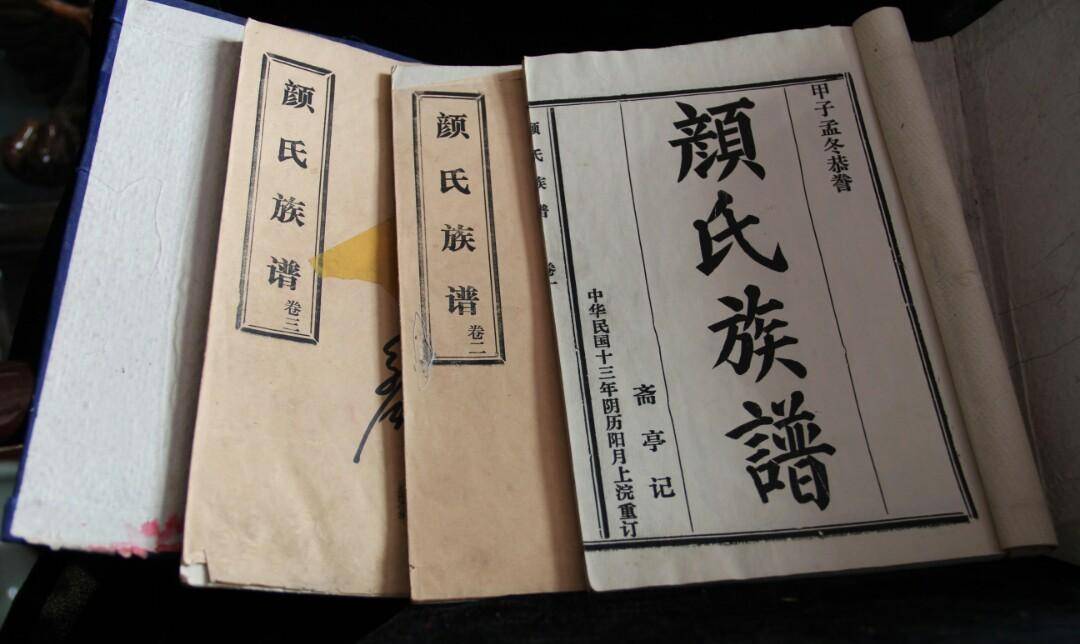 甲子孟冬恭眷
顔氏族譜
斋亭记
中华民国十三年阴历阳月上浣重订
颜氏族谱
颜氏族谱
卷二
颜氏族谱
卷三